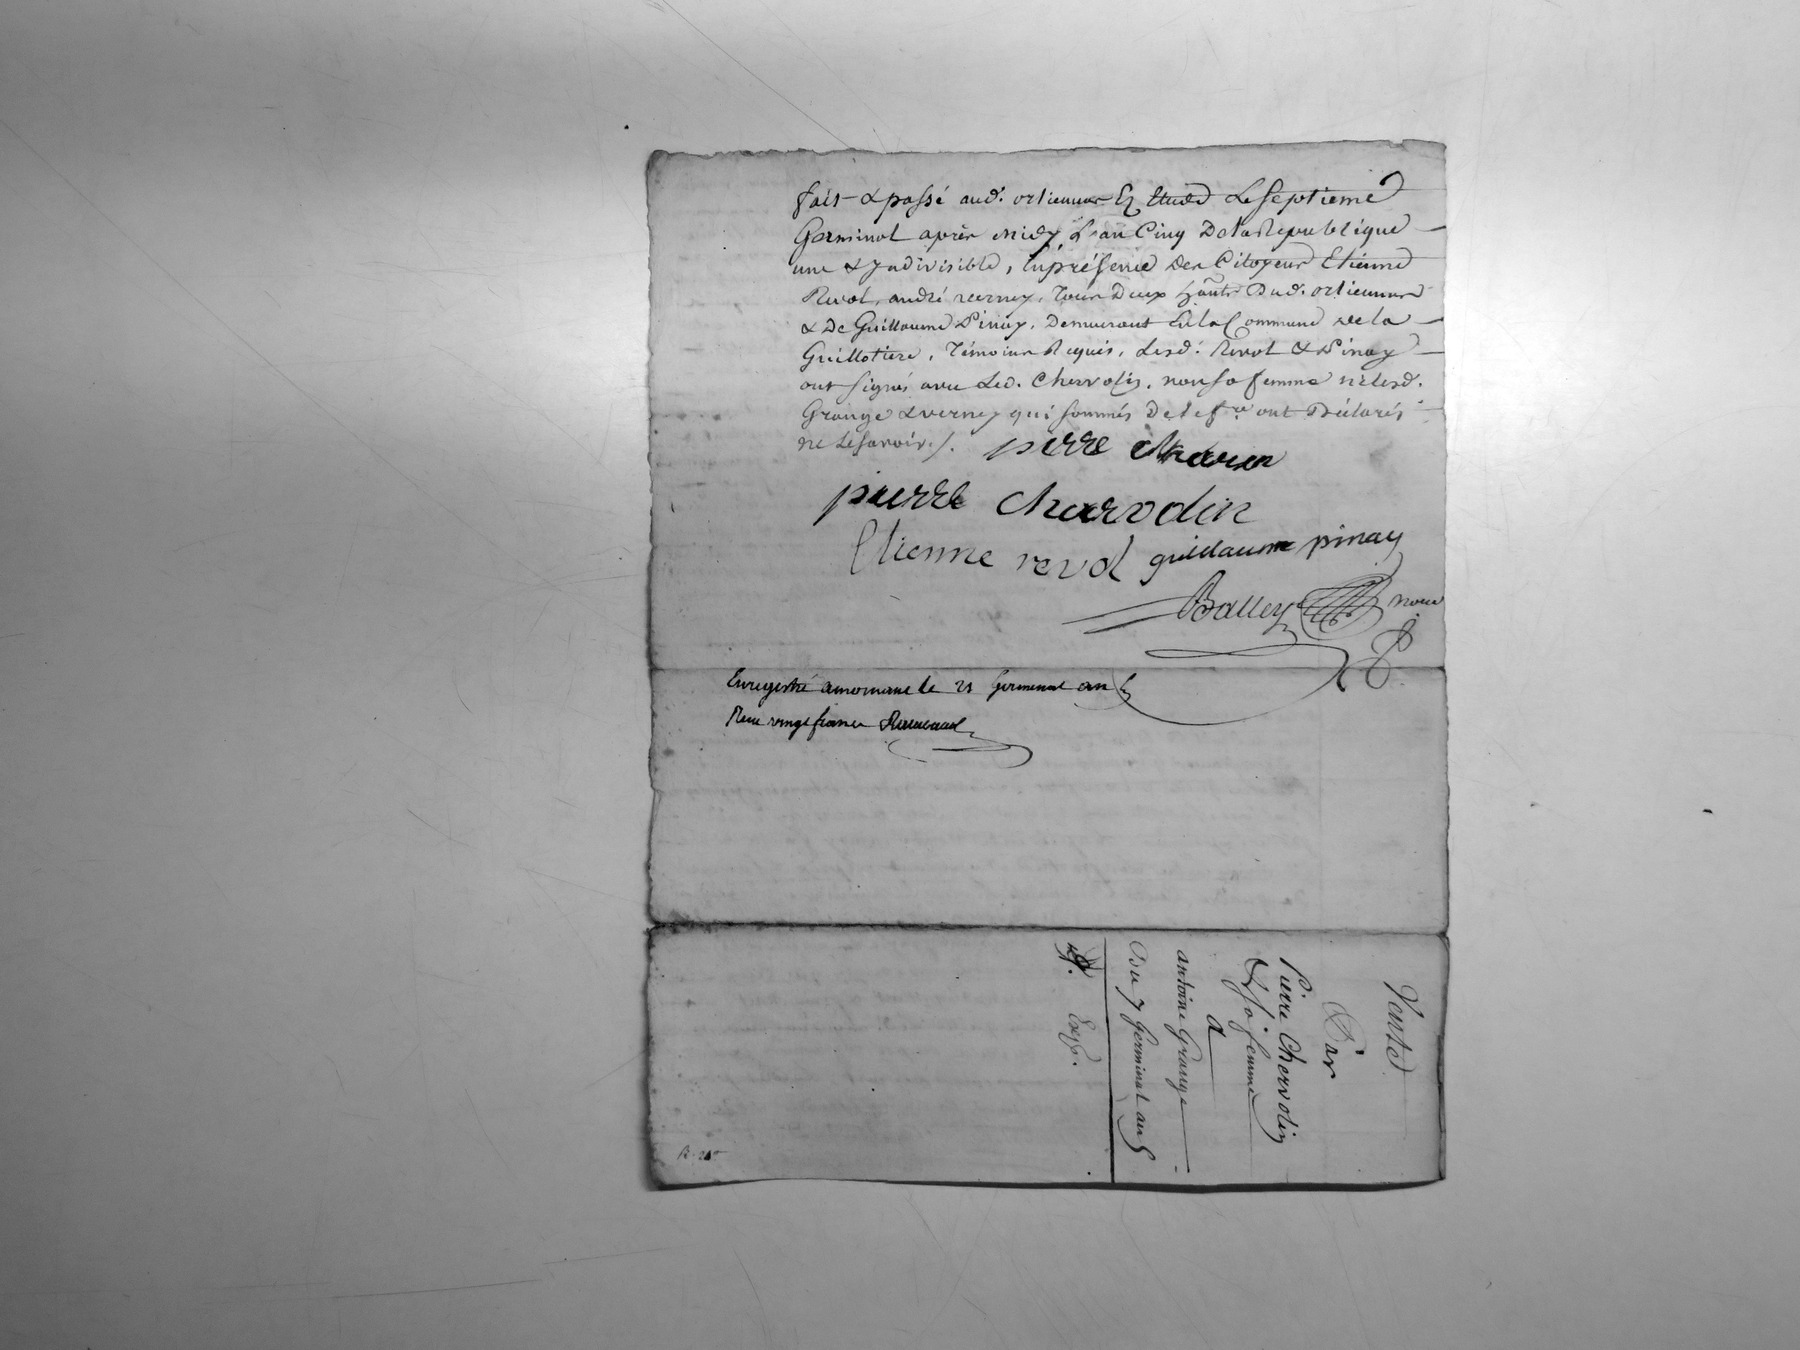 fait & passé aud. orliennas En Etude Le septieme
Germinal après midy, L'an Cinq De la Republique
une & Indivisible, En présence Des Citoyens Etienne
Revol, andré verney, Tous Deux hants Dud. orlienas
& De Guillaume Pinay, Demeurant En la Commune De la
Guillotiere, Témoins Requis, Lesd. Revol & Pinay
ont signés avec Led. Chervolin, non sa femme ni lesd.
Grange & verney qui sommés De le fre ont Déclarés
ne Le savoir ./.
pierre
pierre chervolin
Etienne revol guillaume pinay
Balley nore
Enregistré a mornant le 21 Germinal an 5
Reçu vingt francs
Vente
Par
Pierre Chervolin
& Sa femme
a
antoine Grange
Du 7 Germinal an 5
Exp.